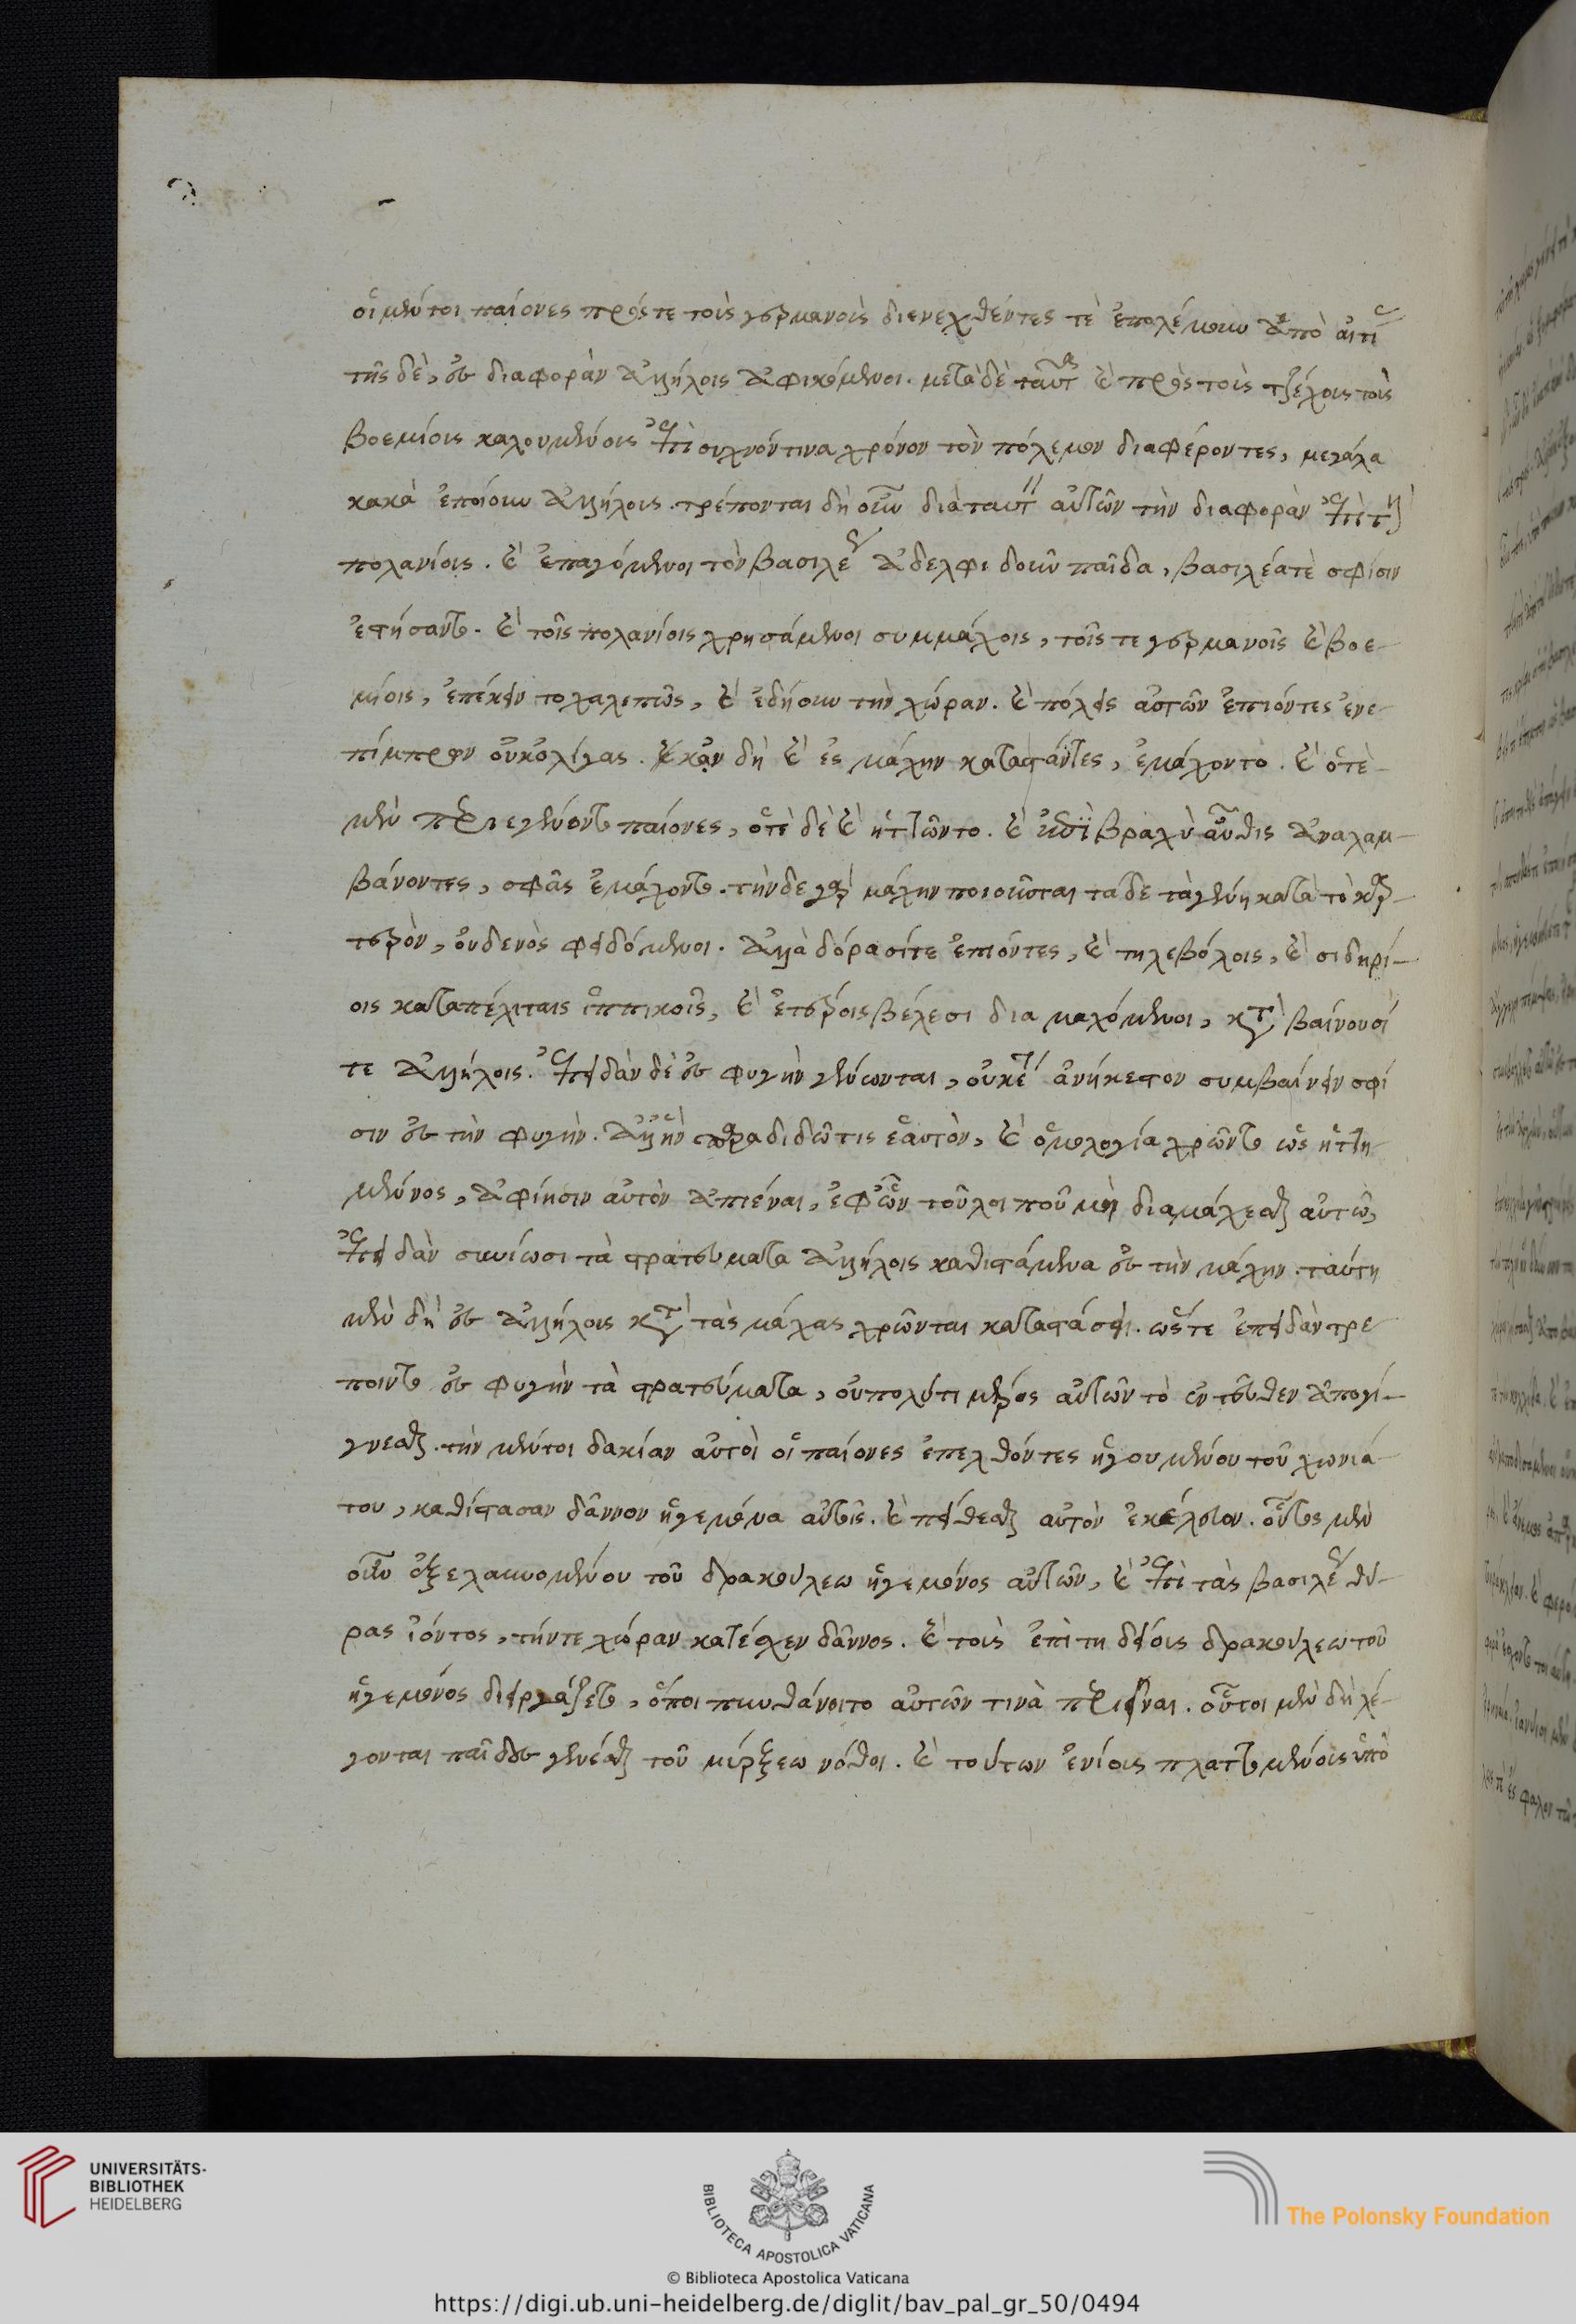 οἱ μέντοι παίονες πρός τε τοὺς γερμανοὺς διενεχθέντες τὲ ἐπολέμουν ἀπὸ αἰτί
τῆς δὲ, ἐς διαφορὰν ἀλλήλοις ἀφικόμενοι. μετὰ δὲ ταῦτα καὶ πρὸς τοὺς τζέχους τοὺς
βοεμίους καλουμένους ἐπὶ συχνόν τινα χρόνον τὸν πόλεμον διαφέροντες, μεγάλα
κακὰ ἐποίουν ἀλλήλοις. τρέπονται δὴ οὖν διὰ ταύτην αὐτῶν τὴν διαφορὰν ἐπὶ τοὺς
πολανίους. καὶ ἐπαγόμενοι τὸν βασιλέως ἀδελφιδοῦν παῖδα, βασιλέα τὲ σφίσιν
ἐστήσαντο. καὶ τοῖς πολανίοις χρησάμενοι συμμάχοις, τοῖς τε γερμανοῖς καὶ βοε-
μίοις, ἐπέκειντο χαλεπῶς, καὶ ἐδῄουν τὴν χώραν. καὶ πόλεις αὐτῶν ἐπιόντες ἐνε-
πίμπρων οὐκ ὀλίγας. κἂν δὴ καὶ ἐς μάχην καταστάντες, ἐμάχοντο. καὶ ὁτὲ
μὲν περιεγένοντο παίονες, ὁτὲ δὲ καὶ ἡττῶντο. καὶ βραχὺ αὖθις ἀναλαμ-
βάνοντες, σφᾶς ἐμάχοντο. τὴν δὲ γὰρ μάχην ποιοῦνται τάδε τὰ γένη κατὰ τὸ καρ-
τερὸν, οὐδενὸς φειδόμενοι. ἀλλὰ δόρασί τε ἐπιόντες, καὶ τηλεβόλοις, καὶ σιδηρί-
οις καταπέλταις ἱππικοῖς, καὶ ἑτέροις βέλεσι διαμαχόμενοι, καταβαίνουσί
τε ἀλλήλοις. ἐπειδὰν δὲ ἐς φυγὴν γένωνται, οὐκέτι ἀνήκεστον συμβαίνειν σφί
σιν ἐς τὴν φυγήν. ἀλλ' ἢν παραδιδῶ τις ἑαυτὸν, καὶ ὁμολογία χρῶντο ὡς ἡττη
μένος, ἀφίησιν αὐτὸν ἀπιέναι, ἐφ' ὧν τοῦ λοιποῦ μὴ διαμάχεσθαι αὐτῶ,
ἐπειδὰν συνίωσι τὰ στρατεύματα ἀλλήλοις καθιστάμενα ἐς τὴν μάχην. ταύτη
μὲν δὴ ἐς ἀλλήλοις κατὰ τὰς μάχας χρῶνται καταστάσει. ὥστε ἐπειδὰν τρέ
ποιντο ἐς φυγὴν τὰ στρατεύματα, οὐ πολύ τι μέρος αὐτῶν τὸ ἐντεῦθεν ἀπογί-
γνεσθαι. τὴν μέντοι δακίαν αὐτοὶ οἱ παίονες ἐπελθόντες ἡγουμένου τοῦ χωνιά-
του, καθίστασαν δάννον ἡγεμόνα αὐτοῖς. καὶ πείθεσθαι αὐτὸν ἐκέλευον. οὗτος μὲν
οὖν ἐξελαυνομένου τοῦ δρακούλεω ἡγεμόνος αὐτῶν, καὶ ἐπὶ τὰς βασιλέως θύ-
ρας ἰόντος, τήν τε χώραν κατέσχεν δάννος. καὶ τοὺς ἐπιτηδείους δρακούλεω τοῦ
ἡγεμόνος διειργάζετο, ὅποι πυνθάνοιτο αὐτῶν τινὰ περιεῖναι. οὗτοι μὲν δὴ λέ-
γονται παῖδες γενέσθαι τοῦ μύρξεω νόθοι. καὶ τούτων ἐνίοις πλαττομένοις ὑπὸ
UNIVERSITÄTS-
BIBLIOTHEK
HEIDELBERG
BIBLIOTECA APOSTOLICA VATICANA
The Polonsky Foundation
© Biblioteca Apostolica Vaticana
https://digi.ub.uni-heidelberg.de/diglit/bav_pal_gr_50/0494